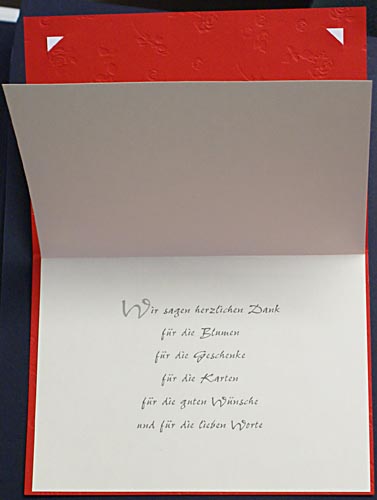 Wir sagen herzlichen Dank
für die Blumen
für die Geschenke
für die Karten
für die guten Wünsche
und für die lieben Worte